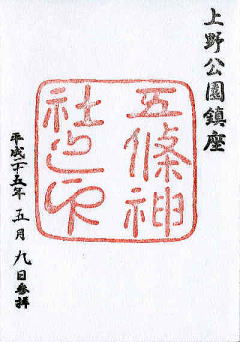 上野公園鎮座
五條神
社之印
平成二十五年五月九日参拝